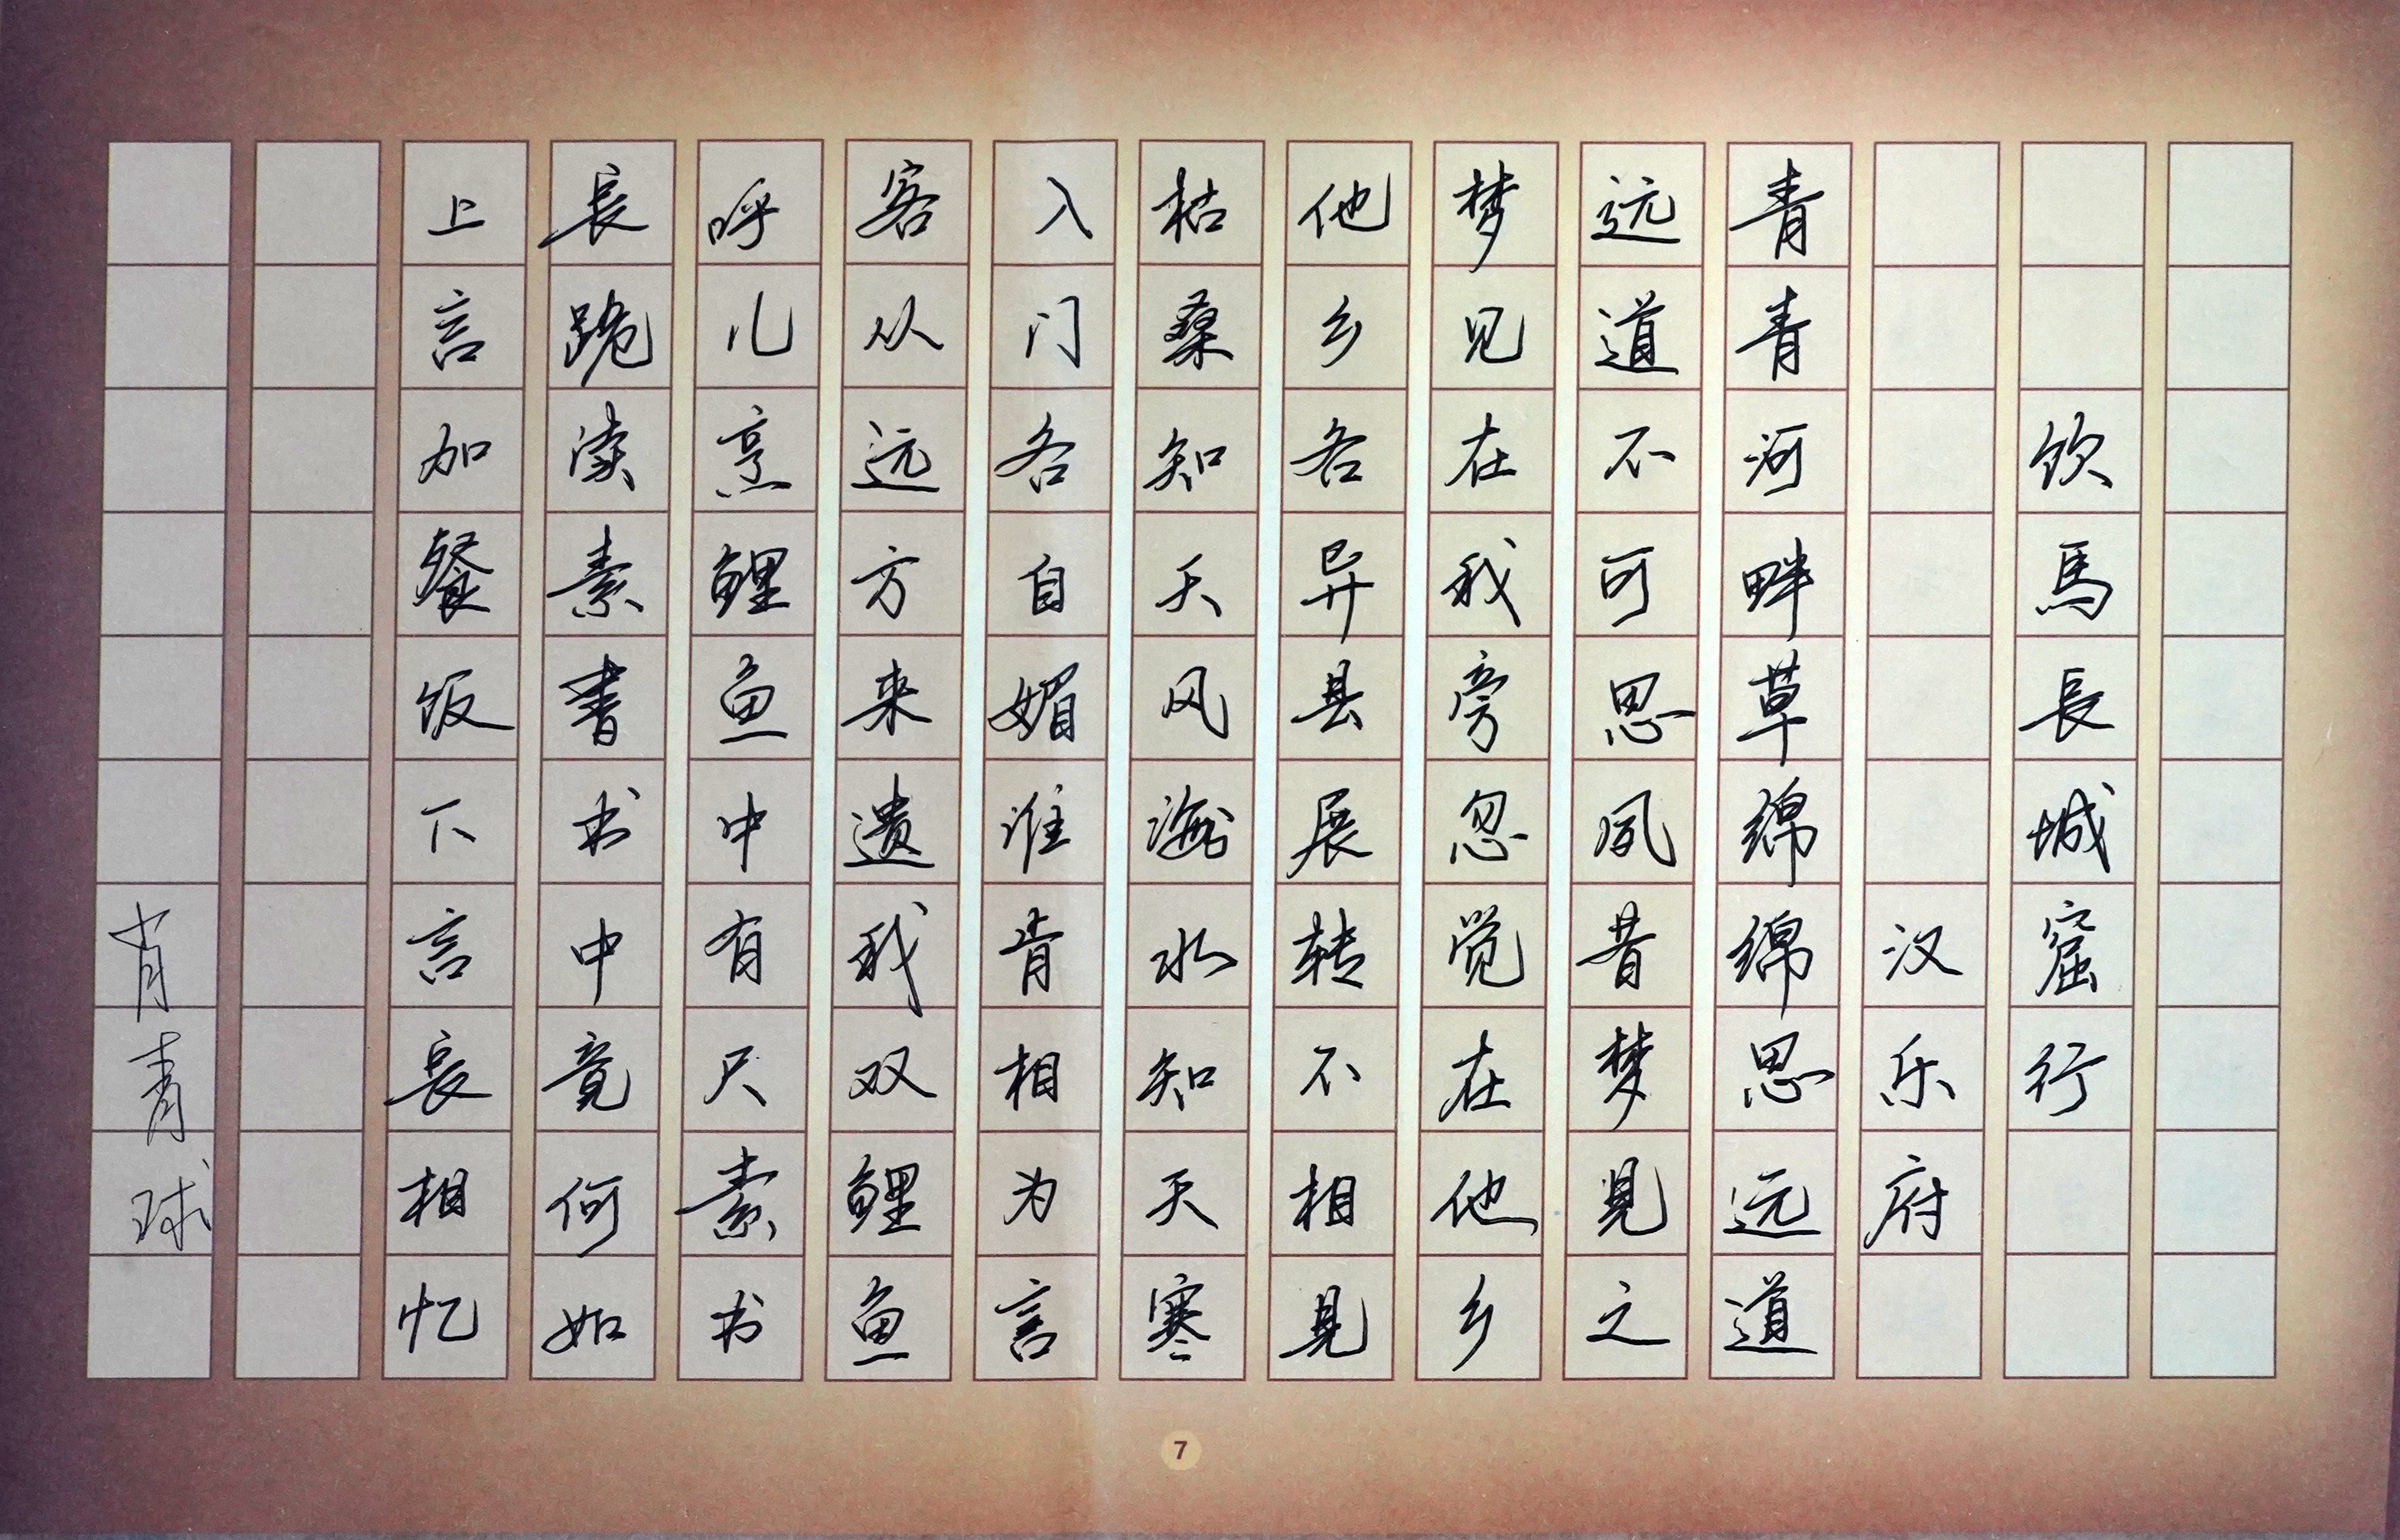 饮馬長城窟行
汉乐府
青青河畔草绵绵思远道
远道不可思夙昔梦見之
梦见在我旁忽觉在他乡
他乡各异县展转不相見
枯桑知天风海水知天寒
入门各自媚谁肯相为言
客从远方来遗我双鲤鱼
呼儿烹鲤鱼中有尺素书
長跪读素書书中竟何如
上言加餐饭下言長相忆
肖青球
7